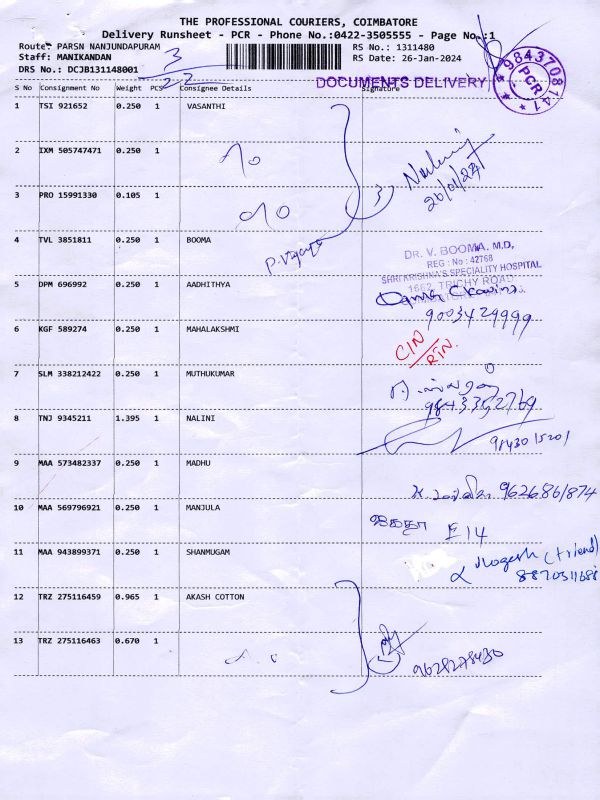 THE PROFESSIONAL COURIERS, COIMBATORE
Delivery Runsheet - PCR - Phone No.:0422-3505555 - Page No.:1
Route: PARSN NANJUNDAPURAM
RS No.: 1311480
Staff: MANIKANDAN
RS Date: 26-Jan-2024
DRS No.: DCJB131148001
3
DOCUMENTS DELIVERY
9843708141
PCR
S No Consignment No Weight PCS Consignee Details Signature
1 TSI 921652 0.250 1 VASANTHI
2 IXM 505747471 0.250 1
3 PRO 15991330 0.105 1
26/01/24
4 TVL 3851811 0.250 1 BOOMA
DR. V. BOOMA, M.D,
REG : No : 42768
SHRI KRISHNA'S SPECIALITY HOSPITAL
1662, TRICHY ROAD
5 DPM 696992 0.250 1 AADHITHYA
9003429999
6 KGF 589274 0.250 1 MAHALAKSHMI
CIN/RTN.
7 SLM 338212422 0.250 1 MUTHUKUMAR
8 TNJ 9345211 1.395 1 NALINI
9843015201
9 MAA 573482337 0.250 1 MADHU
9626861874
10 MAA 569796921 0.250 1 MANJULA
E14
11 MAA 943899371 0.250 1 SHANMUGAM
(friend)
8870311688
12 TRZ 275116459 0.965 1 AKASH COTTON
13 TRZ 275116463 0.670 1
9628278430